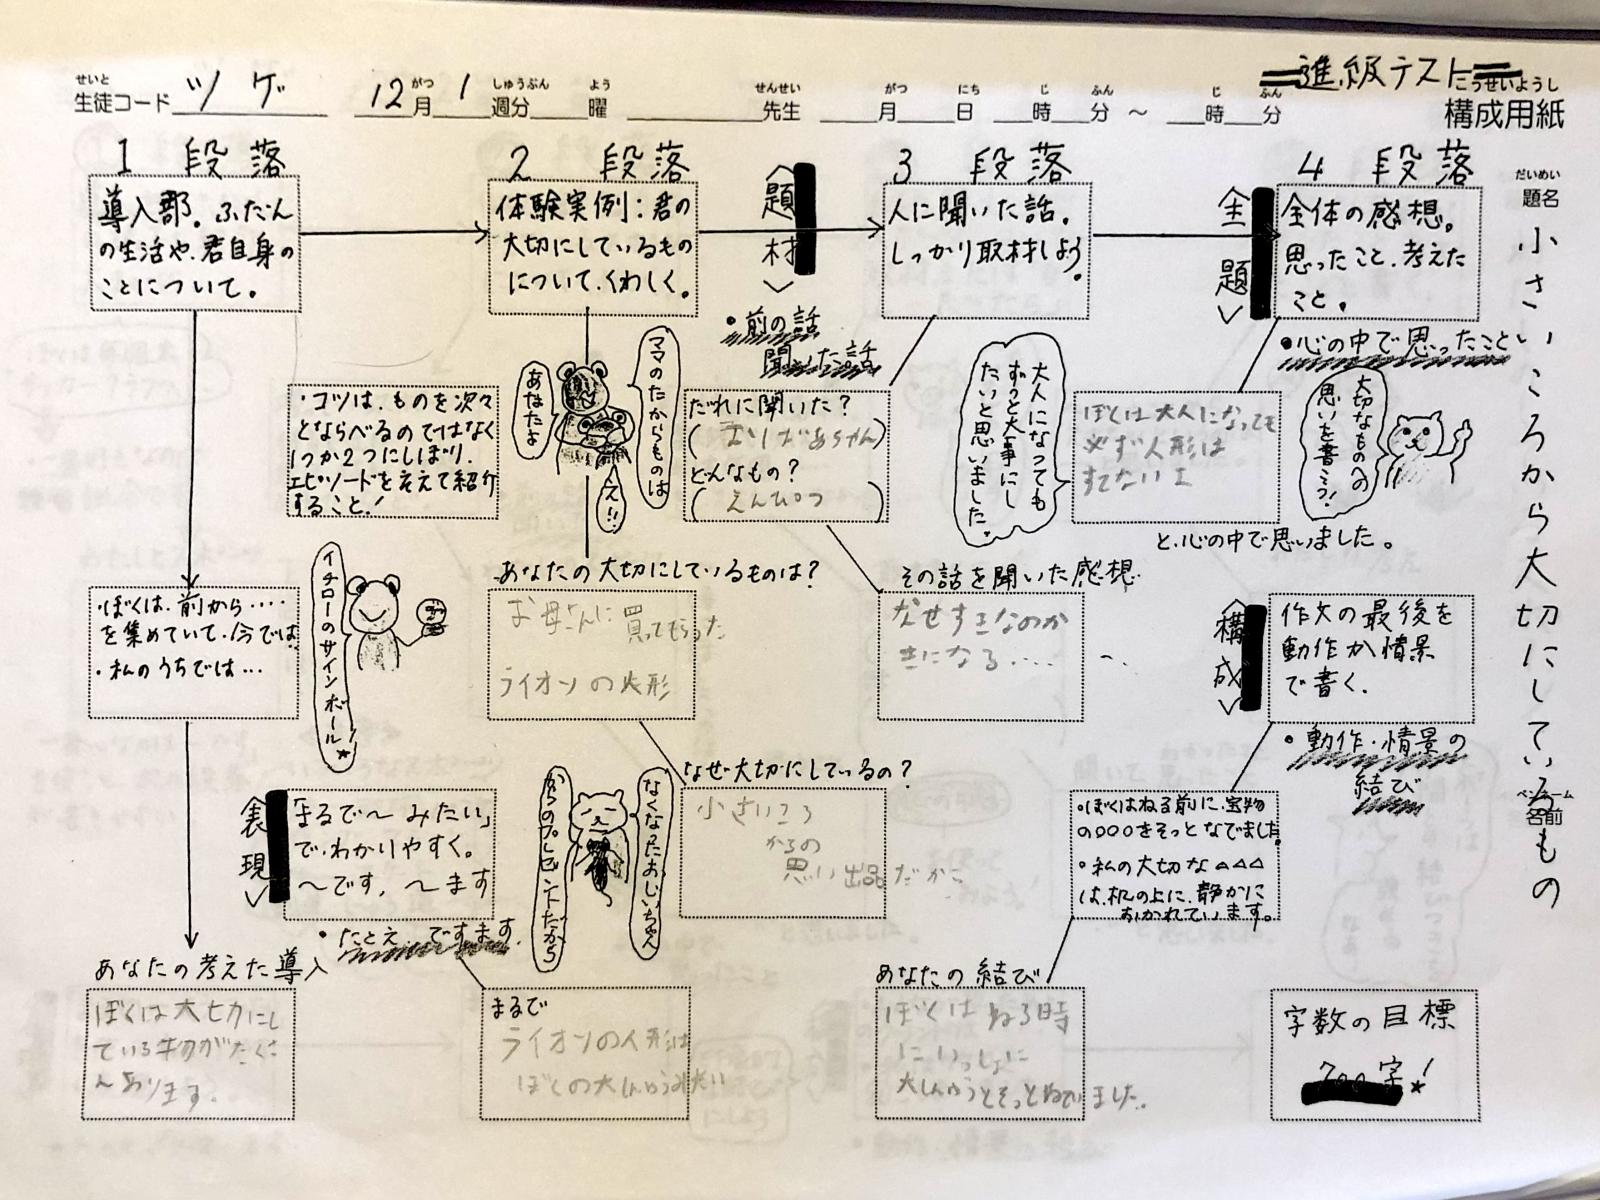 進級テスト
せいと
生徒コード ツゲ 12月 1週分 曜 先生 月 日 時 分 〜 時 分
がつ しゅうぶん よう せんせい がつ にち じ ふん じ ふん
こうせいようし
構成用紙
だいめい
題名
小さいころから大切にしているもの
ペンネーム
名前
1 段落
導入部。ふだん
の生活や、君自身の
ことについて。
・ぼくは、前から‥‥
を集めていて、今では
・私のうちでは…
イチローのサインボール!
あなたの考えた導入
ぼくは大切にし
ている物がたくさ
んあります。
2 段落
体験実例：君の
大切にしているもの
について、くわしく。
・コツは、ものを次々
とならべるのではなく
1つか2つにしぼり、
エピソードを添えて紹介
すること！
ママのたからものは
あなたよ
あなたの大切にしているものは？
お母さんに買ってもらった
ライオンの人形
なぜ大切にしているの？
小さいころ
からの
思い出品だから
なくなったおじいちゃん
からのプレゼントだから
表現
「まるで〜みたい」
で、わかりやすく。
〜です、〜ます
・たとえ、ですます。
まるで
ライオンの人形は
ぼくの大しんゆうみたい
題材
・前の話
聞いた話
3 段落
人に聞いた話。
しっかり取材しよう。
だれに聞いた？
(おばあちゃん)
どんなもの？
(えんぴつ)
その話を聞いた感想
なぜすきなのか
きになる‥‥
4 段落
主題
全体の感想。
思ったこと、考えた
こと。
・心の中で思ったこと
大切なものへの
思いを書こう！
大人になっても
ずっと大事にし
たいと思いました。
ぼくは大人になっても
必ず人形は
すてないよ
と、心の中で思いました。
構成
作文の最後を
動作か情景
で書く。
・動作・情景の
結び
・ぼくはねる前に、宝物
の○○○をそっとなでました。
・私の大切な△△△
は、机の上に、静かに
おかれています。
あなたの結び
ぼくはねる時
にいっしょに
大しんゆうとそっとねていました。
字数の目標
700字！